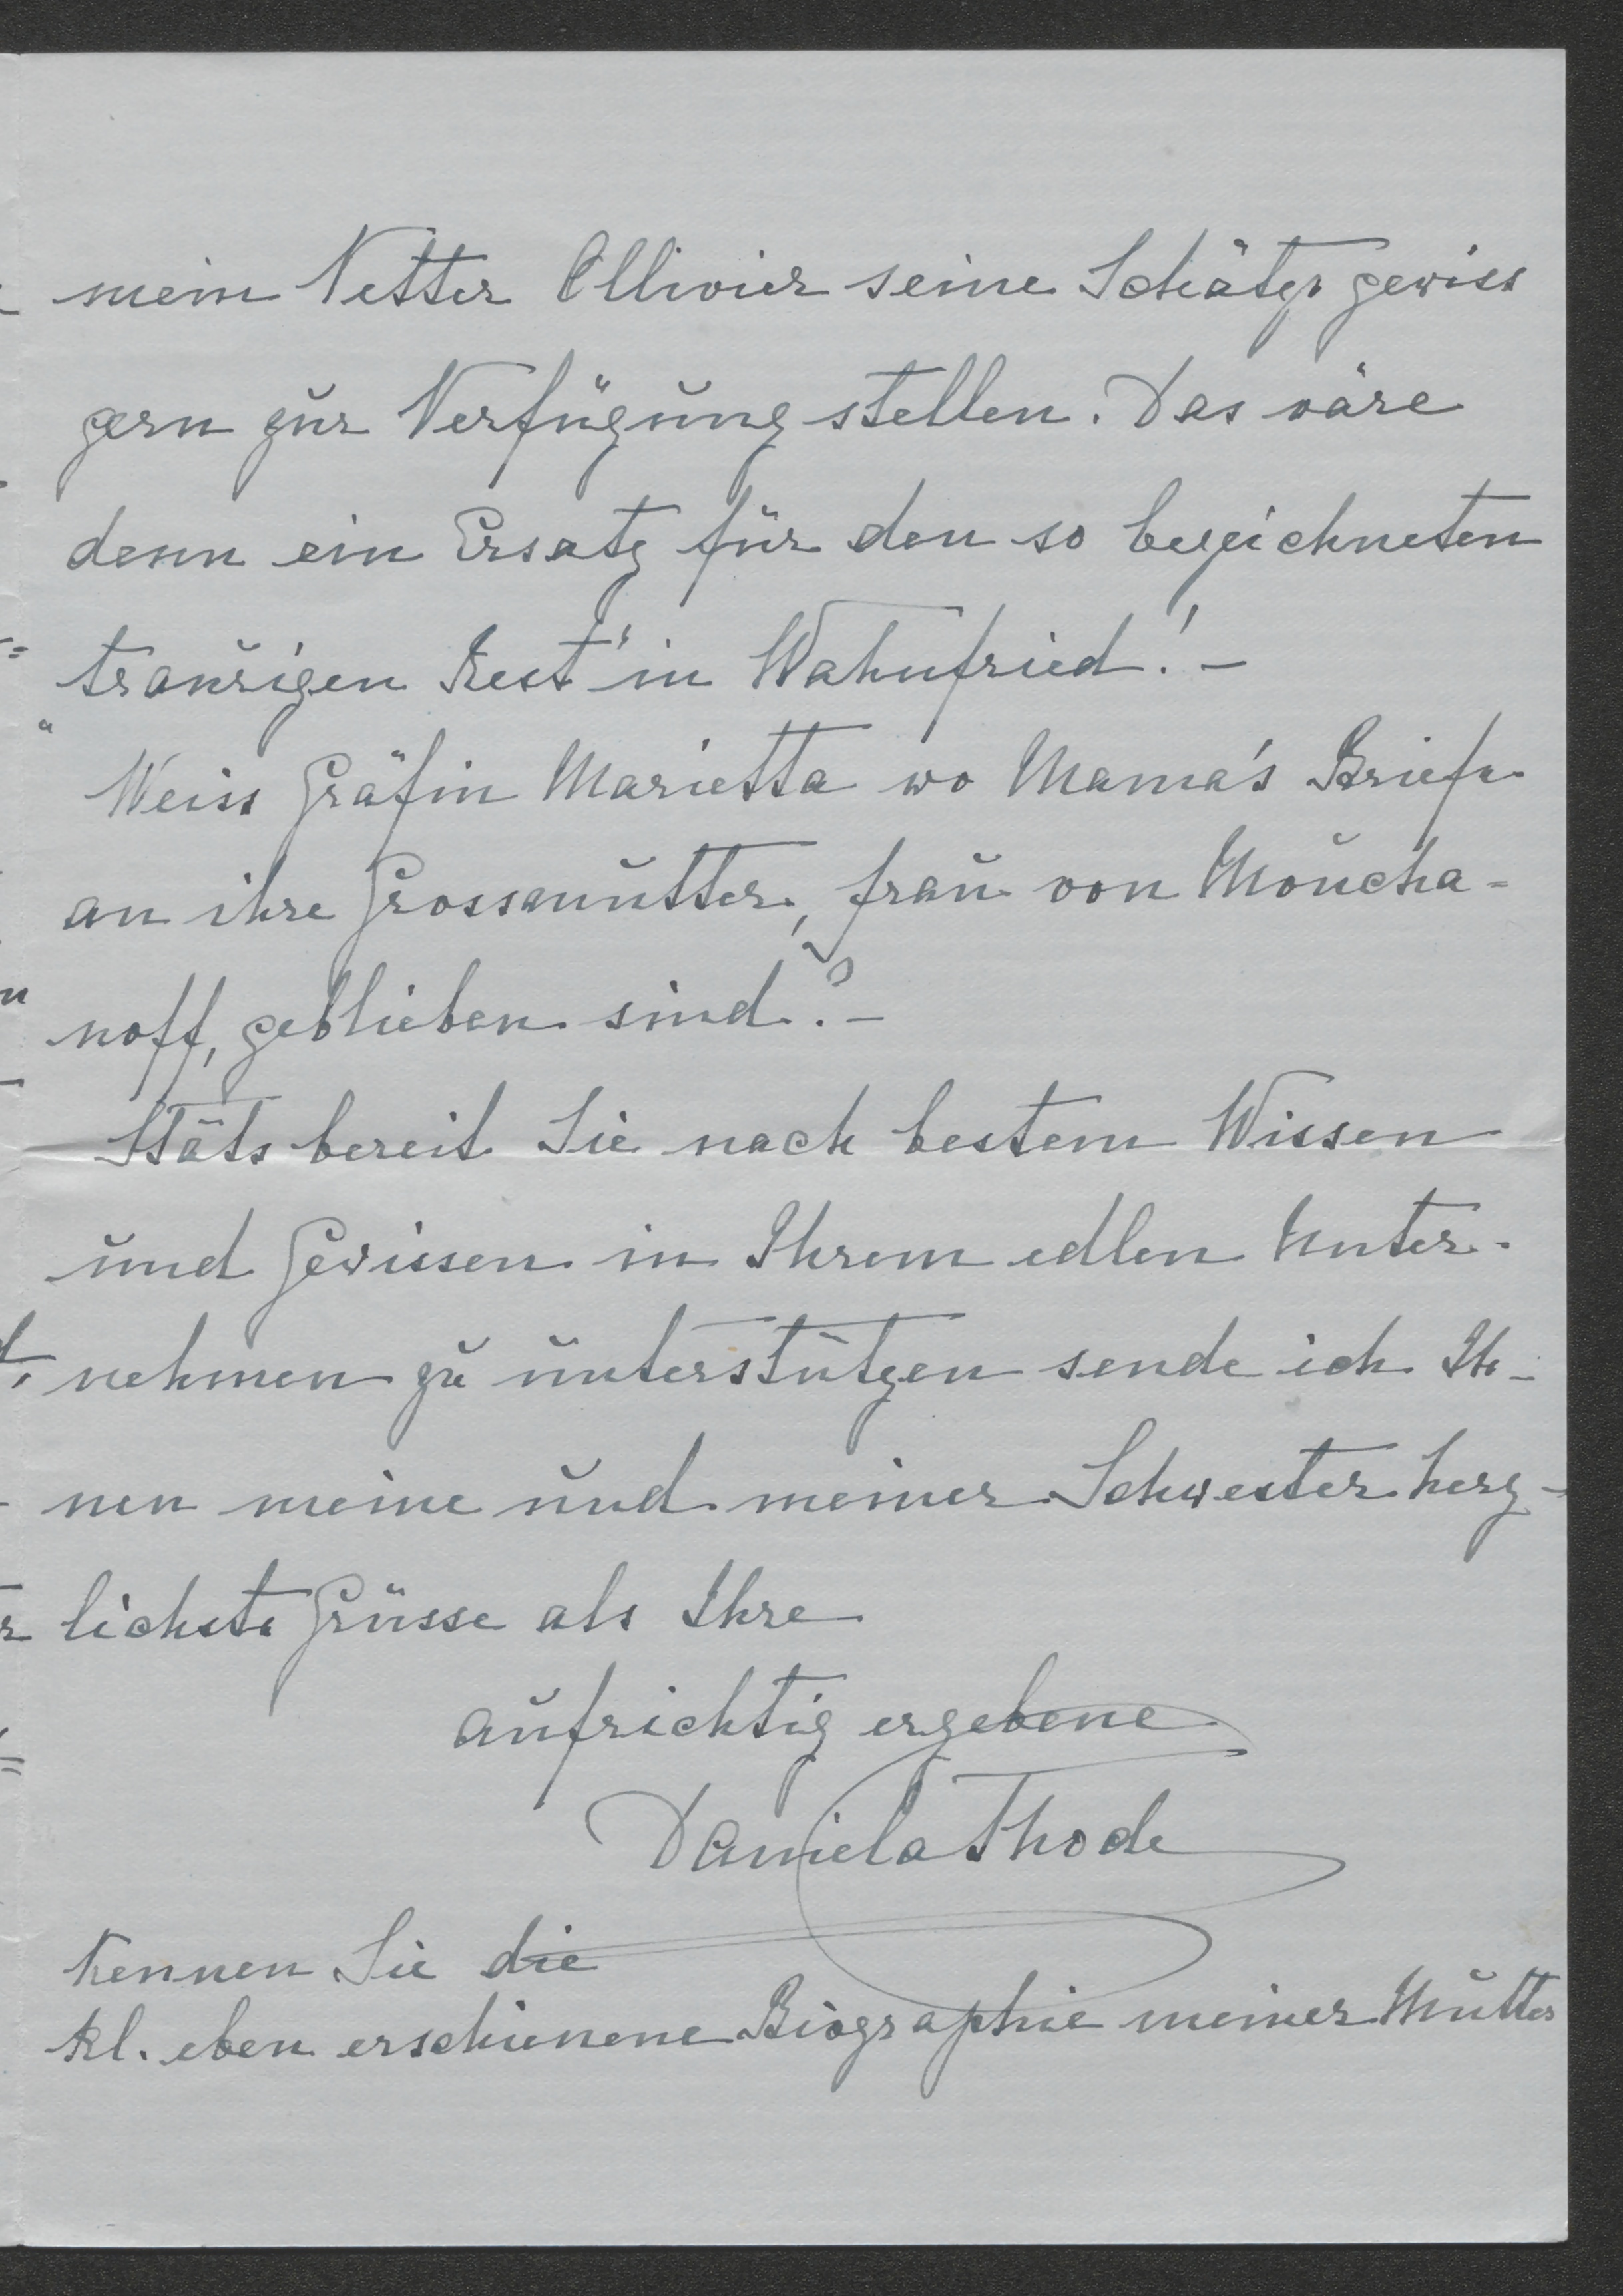 mein Vetter Ollivier seine Schätze gewiss
gern zur Verfügung stellen. Das wäre
denn ein Ersatz für den so bezeichneten
„traurigen Rest" in Wahnfried! –
Weiss Gräfin Marietta wo Mama's Briefe
an ihre Grossmutter, Frau von Moucha-
noff, geblieben sind? –
Stäts bereit Sie nach bestem Wissen
und Gewissen in Ihrem edlen Unter-
nehmen zu unterstützen sende ich Ih-
nen meine und meiner Schwester herz-
lichste Grüsse als Ihre
aufrichtig ergebene
Daniela Thode
Kennen Sie die
kl. eben erschienene Biographie meiner Mutter